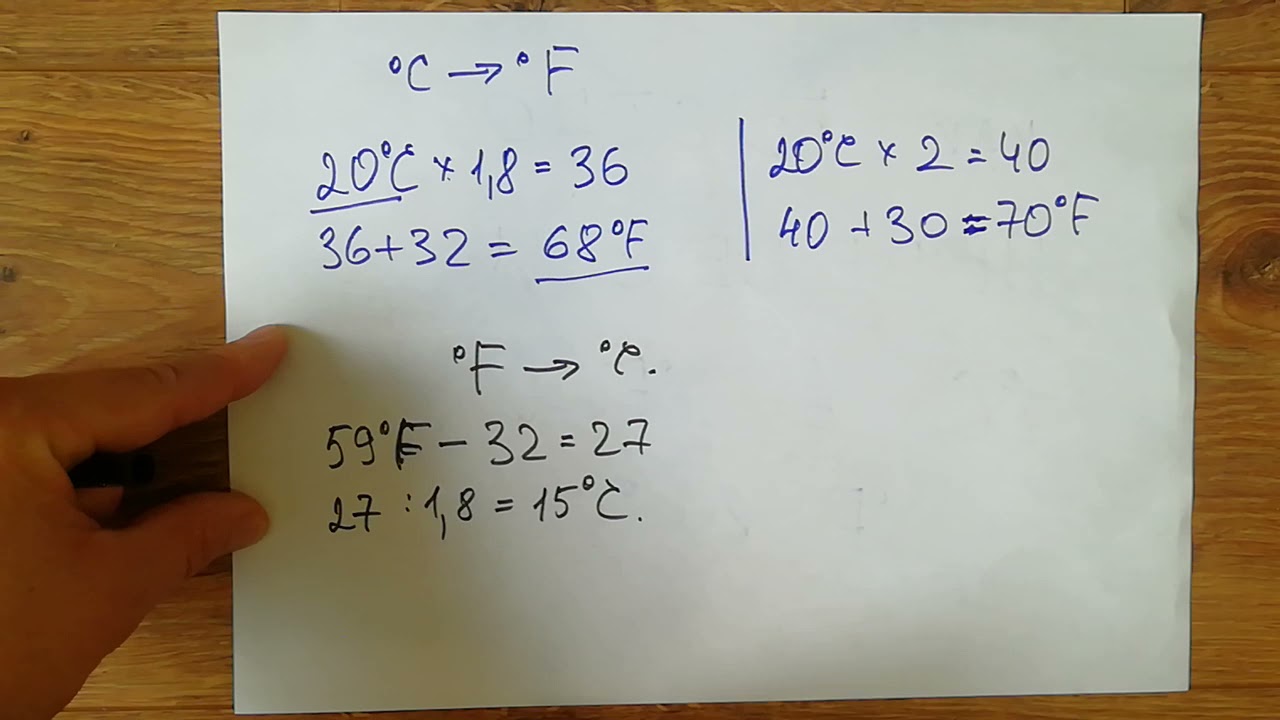 °C → °F
20°C × 1,8 = 36
36 + 32 = 68°F
20°C × 2 = 40
40 + 30 ≈ 70°F
°F → °C.
59°F - 32 = 27
27 : 1,8 = 15°C.